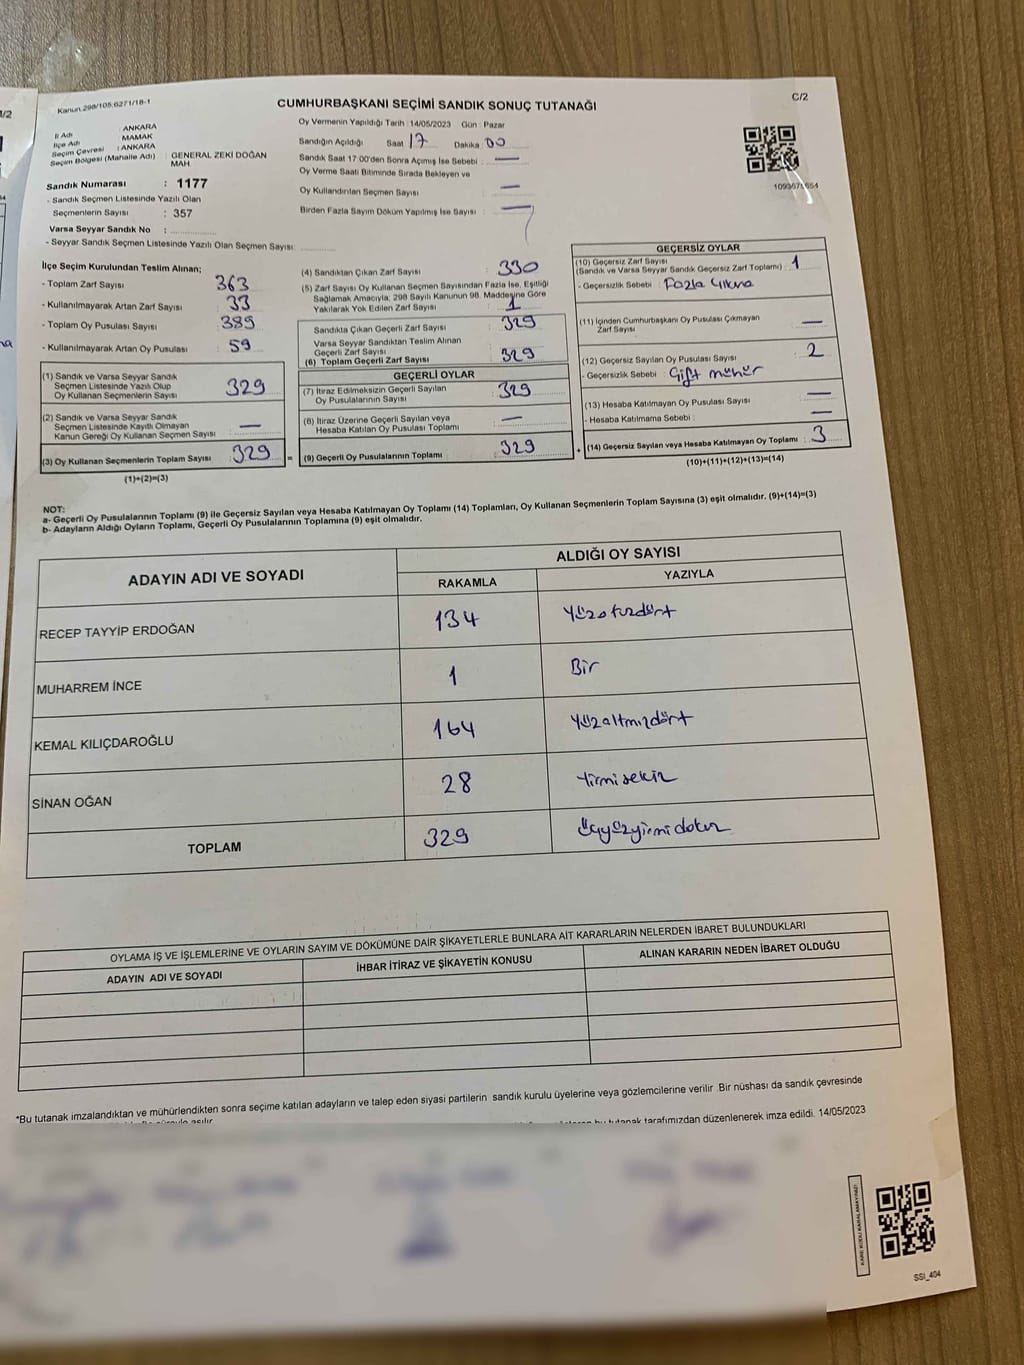 Kanun.298/105;6271/18-1
CUMHURBAŞKANI SEÇİMİ SANDIK SONUÇ TUTANAĞI
C/2
İl Adı : ANKARA
İlçe Adı : MAMAK
Seçim Çevresi : ANKARA
Seçim Bölgesi (Mahalle Adı) : GENERAL ZEKİ DOĞAN MAH.
Sandık Numarası : 1177
- Sandık Seçmen Listesinde Yazılı Olan
Seçmenlerin Sayısı : 357
Varsa Seyyar Sandık No :
- Seyyar Sandık Seçmen Listesinde Yazılı Olan Seçmen Sayısı:
Oy Vermenin Yapıldığı Tarih : 14/05/2023 Gün : Pazar
Sandığın Açıldığı Saat 17 Dakika 00
Sandık Saat 17:00'den Sonra Açımış İse Sebebi : —
Oy Verme Saati Bitiminde Sırada Bekleyen ve
Oy Kullandırılan Seçmen Sayısı —
Birden Fazla Sayım Döküm Yapılmış İse Sayısı : —
1093671654
İlçe Seçim Kurulundan Teslim Alınan;
- Toplam Zarf Sayısı 363
- Kullanılmayarak Artan Zarf Sayısı 33
- Toplam Oy Pusulası Sayısı 389
- Kullanılmayarak Artan Oy Pusulası 59
(1) Sandık ve Varsa Seyyar Sandık
Seçmen Listesinde Yazılı Olup
Oy Kullanan Seçmenlerin Sayısı 329
(2) Sandık ve Varsa Seyyar Sandık
Seçmen Listesinde Kayıtlı Olmayan
Kanun Gereği Oy Kullanan Seçmen Sayısı —
(3) Oy Kullanan Seçmenlerin Toplam Sayısı 329
(1)+(2)=(3)
(4) Sandıktan Çıkan Zarf Sayısı : 330
(5) Zarf Sayısı Oy Kullanan Seçmen Sayısından Fazla İse, Eşitliği
Sağlamak Amacıyla; 298 Sayılı Kanunun 98. Maddesine Göre
Yakılarak Yok Edilen Zarf Sayısı 1
Sandıkta Çıkan Geçerli Zarf Sayısı 329
Varsa Seyyar Sandıktan Teslim Alınan
Geçerli Zarf Sayısı
(6) Toplam Geçerli Zarf Sayısı 329
GEÇERLİ OYLAR
(7) İtiraz Edilmeksizin Geçerli Sayılan
Oy Pusulalarının Sayısı 329
(8) İtiraz Üzerine Geçerli Sayılan veya
Hesaba Katılan Oy Pusulası Toplamı —
= (9) Geçerli Oy Pusulalarının Toplamı 329
GEÇERSİZ OYLAR
(10) Geçersiz Zarf Sayısı : 1
(Sandık ve Varsa Seyyar Sandık Geçersiz Zarf Toplamı)
- Geçersizlik Sebebi : Fazla Çıkma
(11) İçinden Cumhurbaşkanı Oy Pusulası Çıkmayan
Zarf Sayısı —
(12) Geçersiz Sayılan Oy Pusulası Sayısı 2
- Geçersizlik Sebebi : Çift mühür
(13) Hesaba Katılmayan Oy Pusulası Sayısı —
- Hesaba Katılmama Sebebi : —
+ (14) Geçersiz Sayılan veya Hesaba Katılmayan Oy Toplamı : 3
(10)+(11)+(12)+(13)=(14)
NOT:
a- Geçerli Oy Pusulalarının Toplamı (9) ile Geçersiz Sayılan veya Hesaba Katılmayan Oy Toplamı (14) Toplamları, Oy Kullanan Seçmenlerin Toplam Sayısına (3) eşit olmalıdır. (9)+(14)=(3)
b- Adayların Aldığı Oyların Toplamı, Geçerli Oy Pusulalarının Toplamına (9) eşit olmalıdır.
ADAYIN ADI VE SOYADI
ALDIĞI OY SAYISI
RAKAMLA YAZIYLA
RECEP TAYYİP ERDOĞAN 134 Yüzotuzdört
MUHARREM İNCE 1 Bir
KEMAL KILIÇDAROĞLU 164 Yüzaltmızdört
SİNAN OĞAN 28 Yirmisekiz
TOPLAM 329 Üçyüzyirmidokuz
OYLAMA İŞ VE İŞLEMLERİNE VE OYLARIN SAYIM VE DÖKÜMÜNE DAİR ŞİKAYETLERLE BUNLARA AİT KARARLARIN NELERDEN İBARET BULUNDUKLARI
ADAYIN ADI VE SOYADI İHBAR İTİRAZ VE ŞİKAYETİN KONUSU ALINAN KARARIN NEDEN İBARET OLDUĞU
*Bu tutanak imzalandıktan ve mühürlendikten sonra seçime katılan adayların ve talep eden siyasi partilerin sandık kurulu üyelerine veya gözlemcilerine verilir. Bir nüshası da sandık çevresinde
bu tutanak tarafımızdan düzenlenerek imza edildi. 14/05/2023
KARE KODU KARALAMAYINIZ!
SSI_404